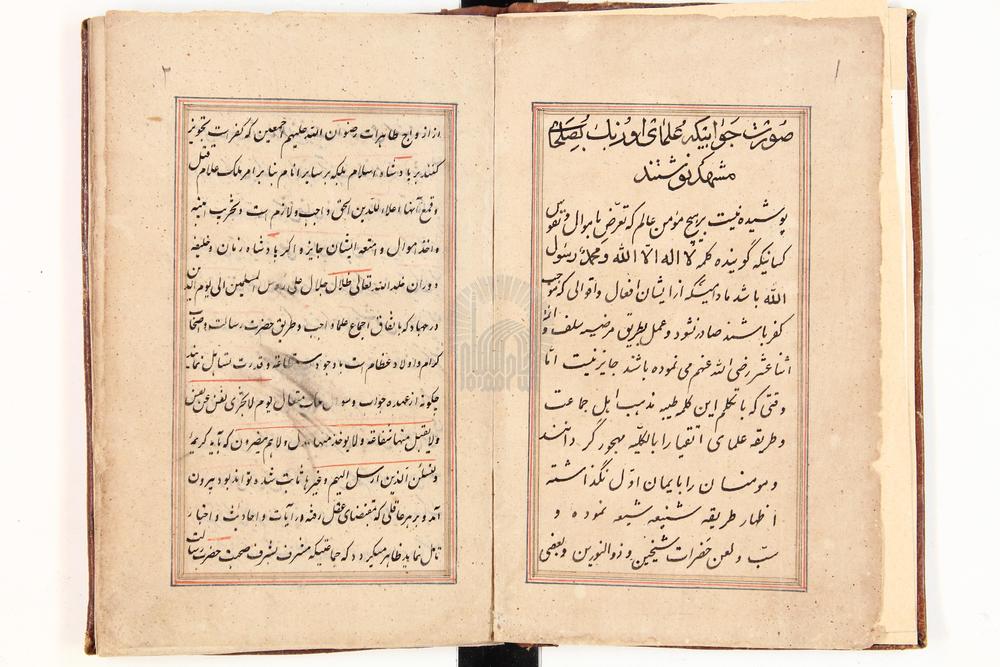 ۱
صورت جوابیکه علمای اوزبک بصلحای
مشهد نوشتند
پوشیده نیست بر هیچ مؤمن عالم که تعرض باموال و نفوس
کسانیکه گوینده کلمه لا اله الا الله و محمد رسول
الله باشد مادامیکه از ایشان افعال و اقوالی که موجب
کفر باشند صادر نشود و عمل بطریق مرضیه سلف و ائمه
اثنا عشر رضی الله عنهم می نموده باشند جایز نیست امّا
وقتی که با تکلم این کلمه طیبه مذهب اهل جماعت
و طریقه علمای اتقیا را بالکلیه مهجور گردانند
و مومنان را بایمان اول نگذاشته
اظهار طریقه شنیعه شیعه نموده و
سبّ و لعن حضرات شیخین و ذوالنورین و بعضی
۲
از ازواج طاهرات رضوان الله علیهم اجمعین که کفر است تجویز
کنند بر پادشاه اسلام بلکه بر سایر انام بنا بر امر ملک علام قتل
و قمع آنها اعلاء للدین الحق واجب و لازم است و تخریب ابنیه
و اخذ اموال و امتعه ایشان جایز و اگر پادشاه زمان و خلیفه
دوران خلد الله تعالی ظلال جلال علی رؤس المسلمین الی یوم الدین
در جهاد که باتفاق اجماع علما واجب و طریق حضرت رسالت و اصحاب
کرام و اولاد عظام است با وجود استطاعه و قدرت تساهل نماید
چگونه از عهده جواب و سوال یوم لا تجزی نفس عن نفس
ولا یقبل منها شفاعة ولا یوخذ منها عدل ولا هم ینصرون که بآیه کریمه
ولنسئلن الذین ارسل الیهم و غیرها ثابت شده تواند بود بیرون
آمد و بر هر عاقلی که بمقتضای عقل رفته در آیات و احادیث و اخبار
تامل نماید ظاهر میگردد که جماعتیکه مشرف بشرف صحبت حضرت رسالت